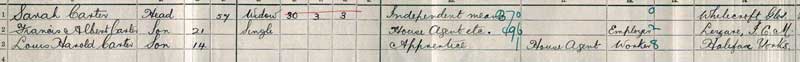 1 Sarah Carter Head 57 Widow 30 3 3 Independent means 070 9 Whitecroft Glos.
2 Francis Albert Carter Son 21 Single House Agent etc. 496 Employer 2 I.C.M.
3 Louis Harold Carter Son 14 Apprentice House Agent Worker 8 Halifax Yorks.
4